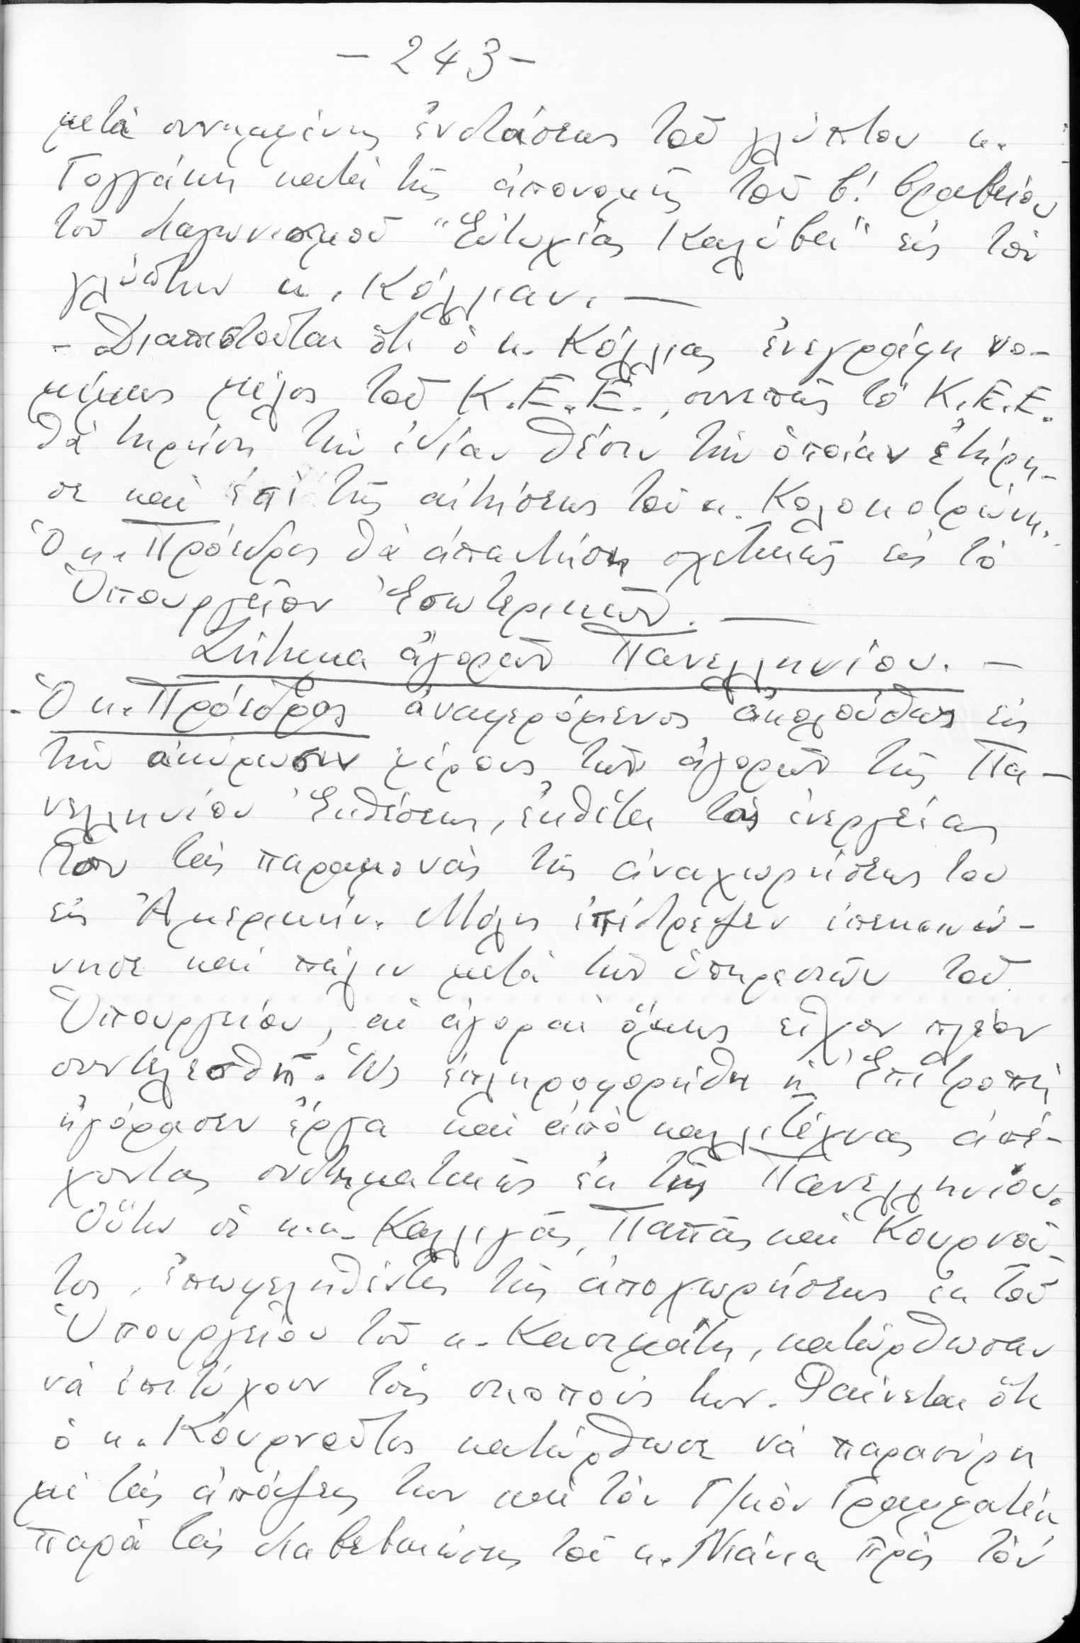 - 243 -
μετὰ συνημμένης ἐνστάσεως τοῦ γλύπτου κ.
κατὰ τῆς ἀπονομῆς τοῦ β! βραβείου
τοῦ διαγωνισμοῦ "Εὐτυχίας Καλύβα" εἰς τὸν
γλύπτην κ. Κόλλιαν. —
- Διαπιστοῦται ὅτι ὁ κ. Κόλλιας ἐνεγράφη νο-
μίμως μέλος τοῦ Κ.Ε.Ε., συνεπῶς τὸ Κ.Ε.Ε.
θὰ τηρήσῃ τὴν ἰδίαν θέσιν τὴν ὁποίαν ἐτήρη-
σε καὶ ἐπὶ τῆς αἰτήσεως τοῦ κ. Κολοκοτρώνη.
Ὁ κ. Πρόεδρος θὰ ἀπαντήσῃ σχετικῶς εἰς τὸ
Ὑπουργεῖον Ἐσωτερικῶν. —
Ζήτημα ἀγορῶν Πανελληνίου. —
- Ὁ κ. Πρόεδρος ἀναφερόμενος ἀκολούθως εἰς
τὴν ἀκύρωσιν μέρους τῶν ἀγορῶν τῆς Πα-
νελληνίου Ἐκθέσεως, ἐκθέτει τὰς ἐνεργείας
του τὰς παραμονὰς τῆς ἀναχωρήσεως του
εἰς Ἀμερικήν. Μόλις ἐπέστρεψεν ἐπεκοινώ-
νησε καὶ πάλιν μετὰ τῶν ὑπηρεσιῶν τοῦ
Ὑπουργείου, αἱ ἀγοραὶ ὅμως εἶχον πλέον
συντελεσθῆ. Ὡς ἐπληροφορήθη ἡ Ἐπιτροπὴ
ἠγόρασεν ἔργα καὶ ἀπὸ καλλιτέχνας ἀπέ-
χοντας συστηματικῶς ἐκ τῆς Πανελληνίου.
Οὕτω οἱ κ.κ. Καλλιγᾶς, Παπᾶς καὶ Κουρνοῦ-
τος, ἐπωφεληθέντες τῆς ἀποχωρήσεως ἐκ τοῦ
Ὑπουργείου τοῦ κ. Κασιμάτη, κατώρθωσαν
νὰ ἐπιτύχουν τοὺς σκοποὺς των. Φαίνεται ὅτι
ὁ κ. Κουρνοῦτος κατώρθωσε νὰ παρασύρῃ
μὲ τὰς ἀπόψεις των καὶ τὸν Γ/κὸν Γραμματέα
παρὰ τὰς διαβεβαιώσεις τοῦ κ. πρὸς τὸν